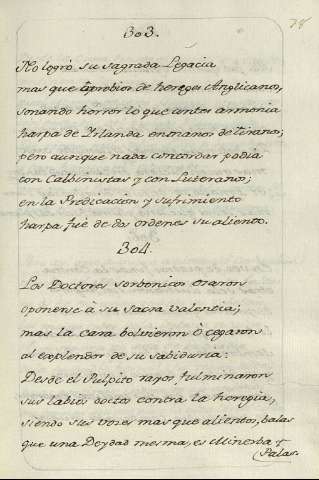 78
303.
No logró su sagrada Legacia
mas que oprobios de hereges Anglicanos,
sonando horror lo que antes armonia
harpa de Irlanda en manos de tiranos;
pero aunque nada concordar podia
con Calbinistas y con Luteranos;
en la Predicacion y Sufrimiento
harpa fué de dos ordenes su aliento.
304.
Los Doctores sorbonicos osaron
oponerse à su sacra valentia;
mas la cara bolvieron ò cegaron
al explendor de su sabiduria:
Desde el Pulpito rayos fulminaron
sus labios doctos contra la heregia,
siendo sus voces mas que alientos, balas
que una Deydad mesma, es Minerba y
Palas.